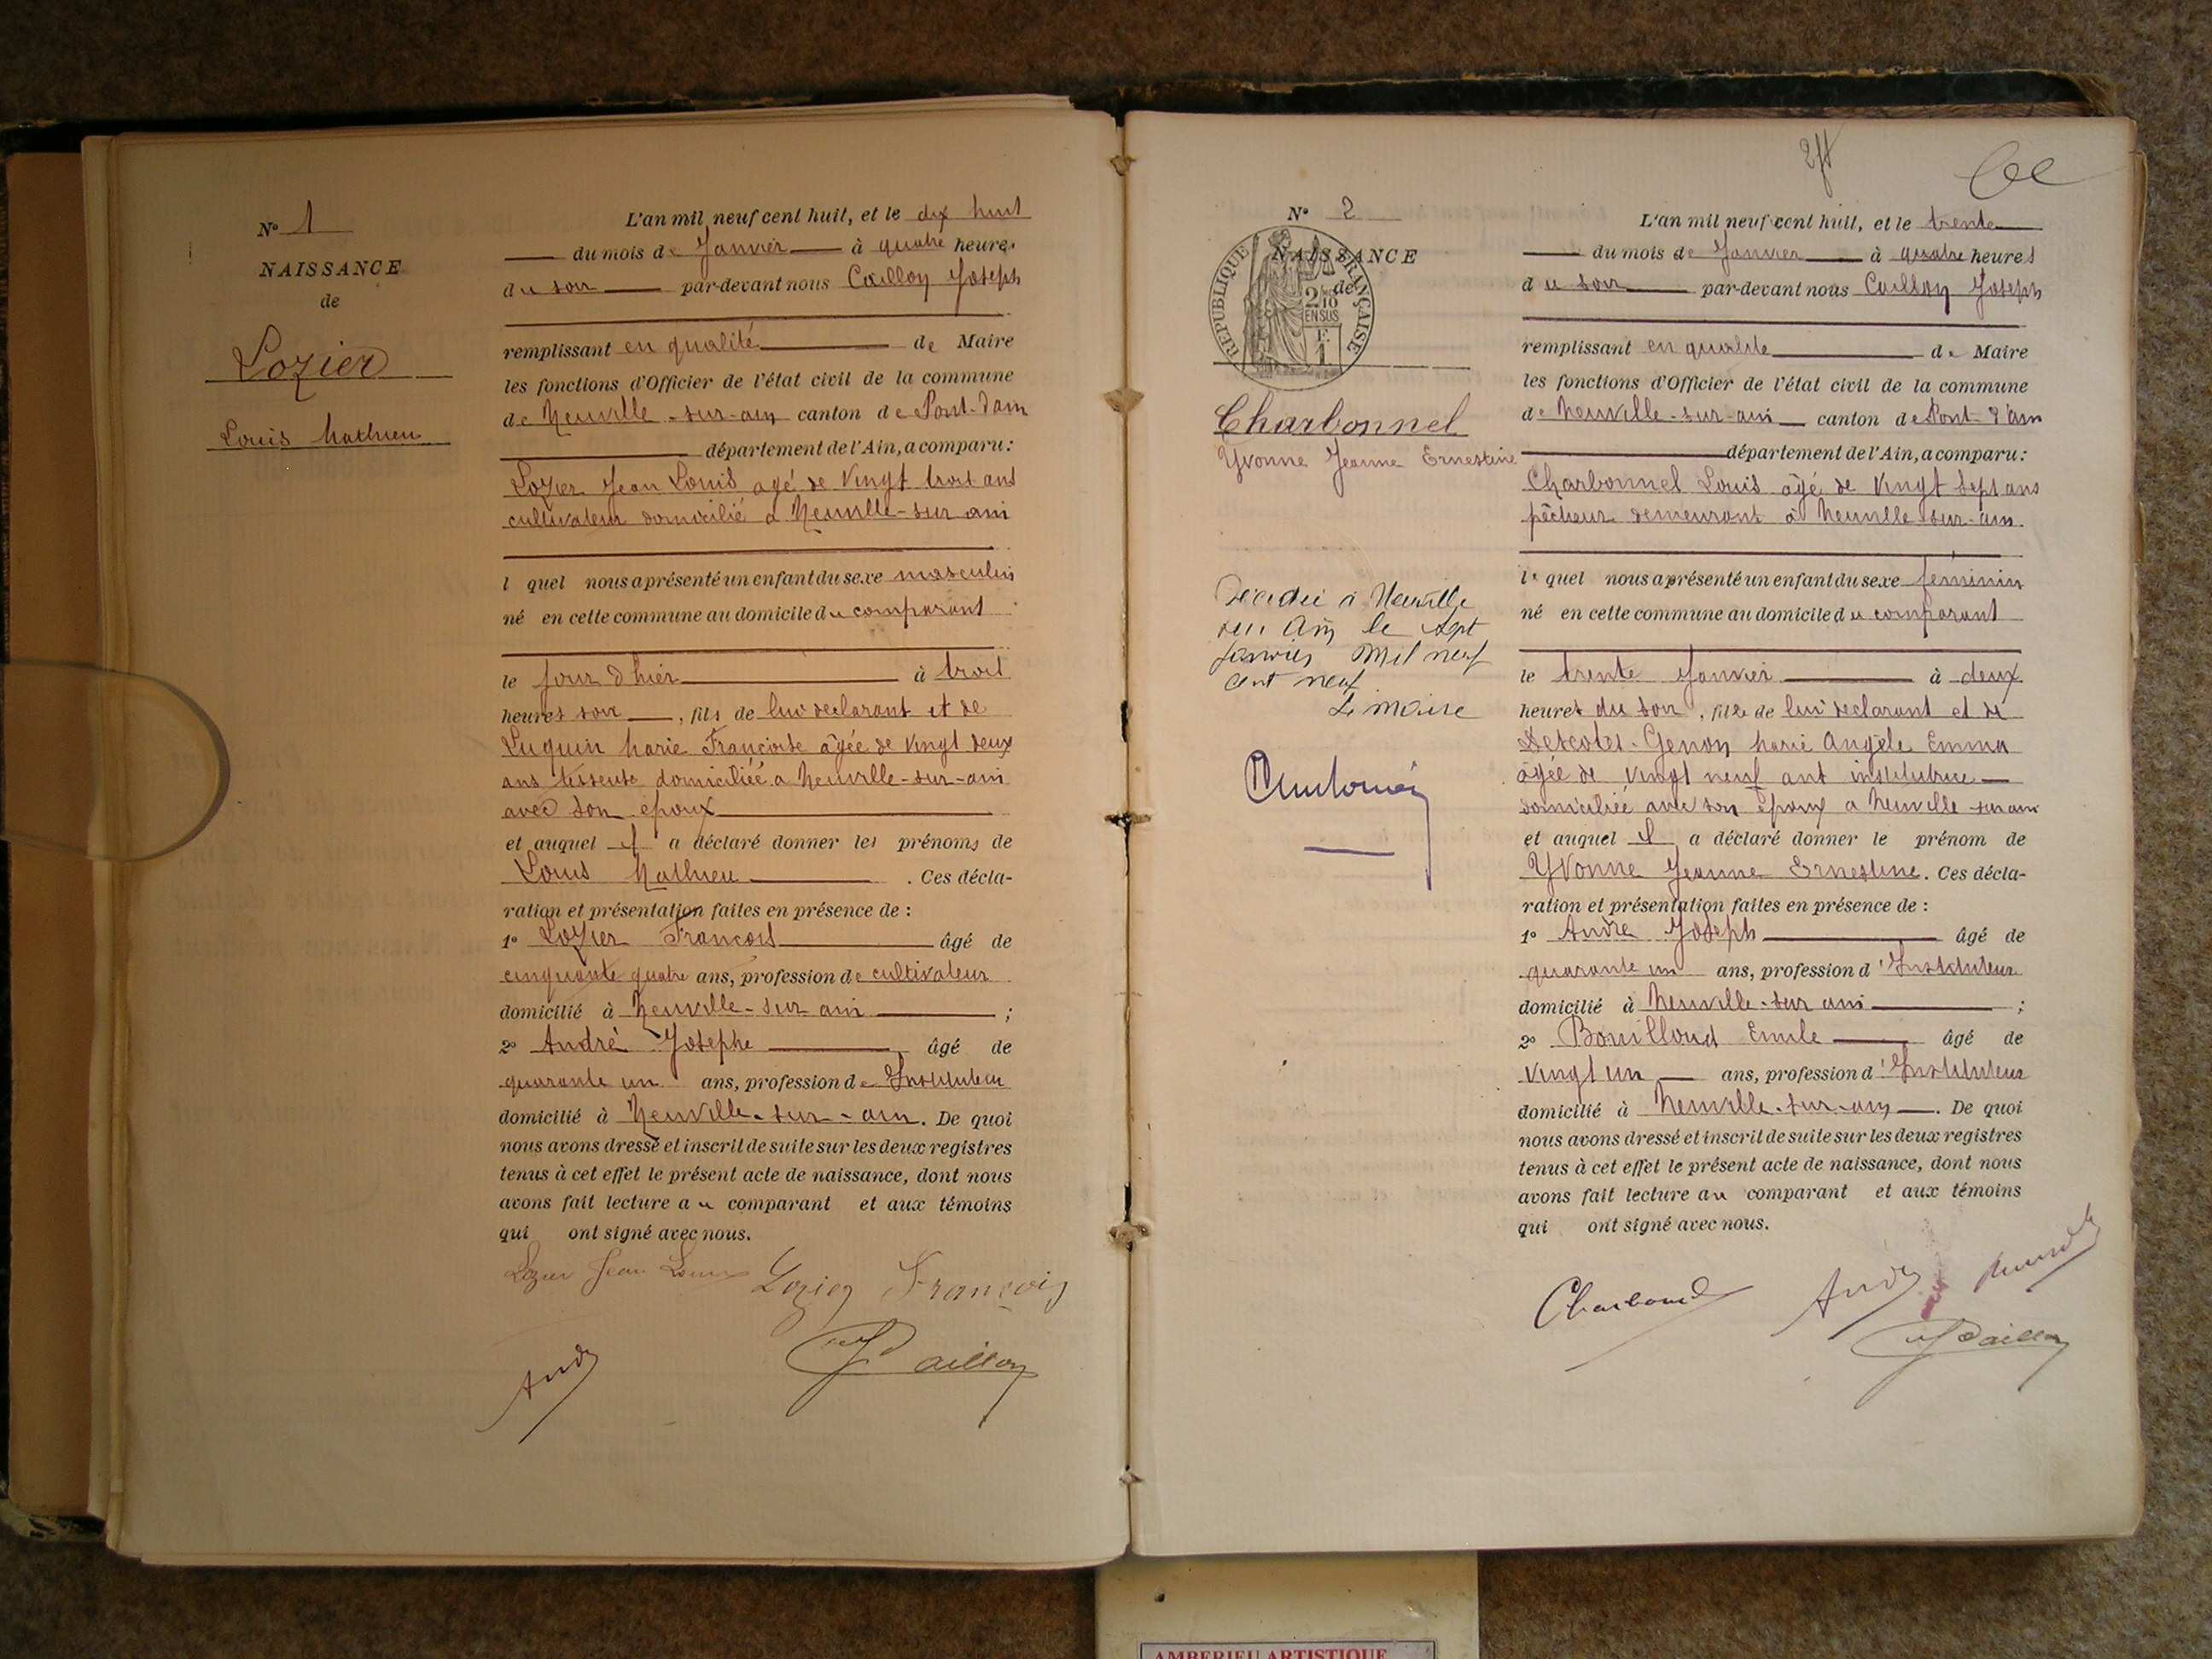 N° 1
NAISSANCE
de
Lozier
Louis Mathieu
L'an mil neuf cent huit, et le dix huit
du mois de Janvier à quatre heures
du soir par-devant nous Caillon Joseph
remplissant en qualité de Maire
les fonctions d'Officier de l'état civil de la commune
de Neuville-sur-ain canton de Pont-d'ain
département de l'Ain, a comparu:
Lozier Jean Louis agé de vingt trois ans
cultivateur domicilié a Neuville-sur ain
l quel nous a présenté un enfant du sexe masculin
né en cette commune au domicile du comparant
le jour d'hier à trois
heures soir, fils de lui déclarant et de
Luquin Marie Françoise âgée de vingt deux
ans tisseuse domiciliée a Neuville-sur-ain
avec son époux
et auquel il a déclaré donner les prénoms de
Louis Mathieu. Ces décla-
ration et présentation faites en présence de :
1° Lozier Francois âgé de
cinquante quatre ans, profession de cultivateur
domicilié à Neuville-sur ain ;
2° André Josephe âgé de
quarante un ans, profession de Instituteur
domicilié à Neuville-sur-ain. De quoi
nous avons dressé et inscrit de suite sur les deux registres
tenus à cet effet le présent acte de naissance, dont nous
avons fait lecture au comparant et aux témoins
qui ont signé avec nous.
Lozier Jean Louis Lozier François
André J Caillon
N° 2
NAISSANCE
de
REPUBLIQUE FRANÇAISE
2/10
EN SUS
Charbonnel
Yvonne Jeanne Ernestine
Décédée à Neuville
sur Ain le sept
janvier mil neuf
cent neuf
Le maire
L'an mil neuf cent huit, et le trente
du mois de Janvier à quatre heures
du soir par-devant nous Caillon Joseph
remplissant en qualite de Maire
les fonctions d'Officier de l'état civil de la commune
de Neuville-sur-ain canton de Pont-d'ain
département de l'Ain, a comparu:
Charbonnel Louis âgé de vingt sept ans
pêcheur demeurant à Neuville-sur-ain.
le quel nous a présenté un enfant du sexe féminin
né en cette commune au domicile du comparant
le trente Janvier à deux
heures du soir, fille de lui déclarant et de
Descotes-Genon Marie Angèle Emma
âgée de vingt neuf ans institutrice
domiciliée avec son époux a Neuville-sur ain
et auquel il a déclaré donner le prénom de
Yvonne Jeanne Ernestine. Ces décla-
ration et présentation faites en présence de :
1° André Joseph âgé de
quarante un ans, profession d'Instituteur
domicilié à Neuville-sur ain ;
2° Bouilloud Emile âgé de
vingt un ans, profession d'Instituteur
domicilié à Neuville-sur-ain. De quoi
nous avons dressé et inscrit de suite sur les deux registres
tenus à cet effet le présent acte de naissance, dont nous
avons fait lecture au comparant et aux témoins
qui ont signé avec nous.
Charbonnel André
J Caillon
AMBERIEU ARTISTIQUE